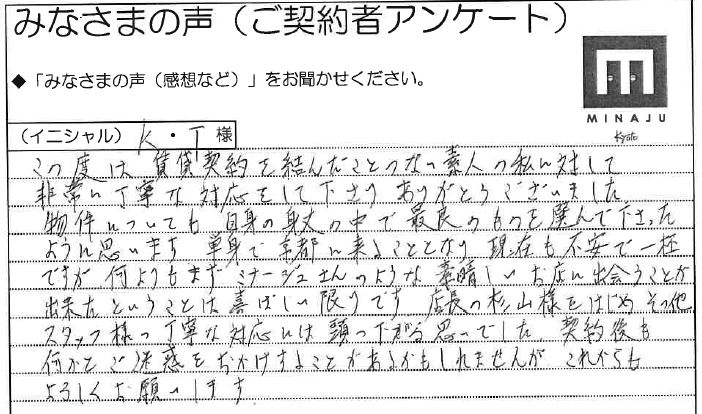 みなさまの声（ご契約者アンケート）
◆「みなさまの声（感想など）」をお聞かせください。
MINAJU
Kyoto
（イニシャル） K・T 様
この度は 賃貸契約を結んだことのない素人の私に対して
非常に丁寧な対応をして下さり ありがとうございました
物件についても 自身の身丈の中で最良のものを選んで下さった
ように思います 単身で京都に来ることとなり 現在も不安で一杯
ですが 何よりもまず ミナージュさんのような素晴しいお店に出会うことが
出来たということは喜ばしい限りです 店長の杉山様をはじめ その他
スタッフ様の丁寧な対応には頭の下がる思いでした 契約後も
何かとご迷惑をおかけすることがあるかもしれませんが これからも
よろしくお願いします